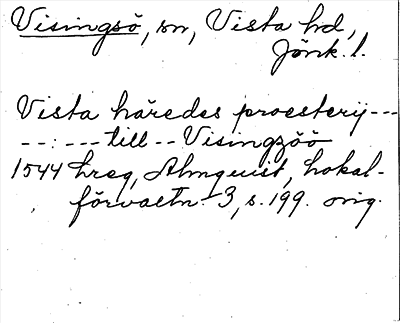 Visingsö, sn, Vista hd,
Jönk. l.
Vista häredes proesterij ---
--:--- till -- Visingzöö
1544 hreg, Almquist, Lokal-
förvaltn. 3, s. 199. orig.